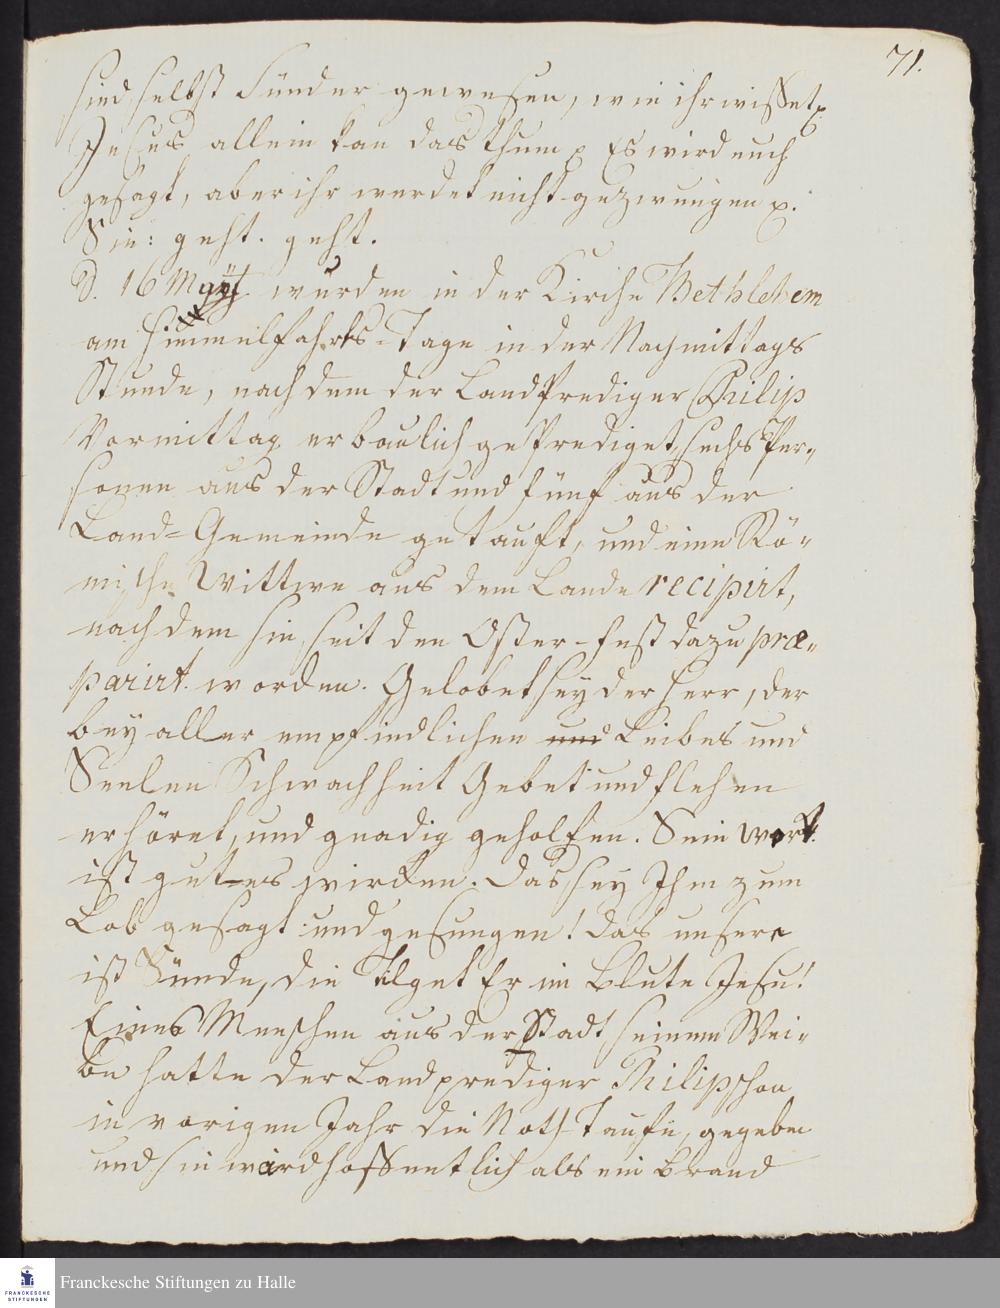 71.
sind selbst Sünder gewesen, wie ihr wisset p.
Jesus allein kan das thun p Es wird euch
gesagt, aber ihr werdet nicht gezwungen p.
Sie: geht. geht.
d. 16 May wurden in der Kirche Bethlehem
am Himmelfahrts-Tage in der Nachmittags
Stunde, nachdem der LandPrediger Philip
Vormittag erbaulich geprediget, sechs Per-
sonen aus der Stadt und fünf aus der
Land-Gemeinde getauft, und eine Rö-
mische Wittwe aus dem Lande recipirt,
nachdem sie seit den Oster-Fest dazu præ-
parirt worden. Gelobet sey der Herr, der
bey aller empfindlichen und Leibes und
Seelen Schwachheit Gebet und Flehen
erhöret, und gnädig geholfen. Sein Werk
ist gutes wircken. Das sey Ihm zum
Lob gesagt und gesungen! das unsere
ist Sünde, die Tilget Er im Blute Jesu!
Eines Menschen aus der Stadt seinem Wei-
be hatte der Landprediger Philip schon
in vorigen Jahr die Noth-Taufe, gegeben
und sie wird hoffentlich als ein Brand
Franckesche Stiftungen zu Halle
FRANCKESCHE
STIFTUNGEN